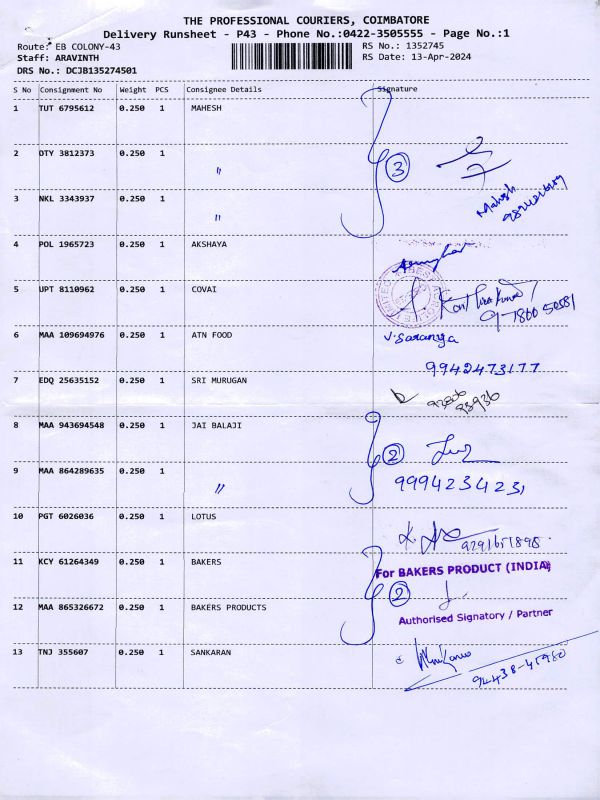 THE PROFESSIONAL COURIERS, COIMBATORE
Delivery Runsheet - P43 - Phone No.:0422-3505555 - Page No.:1
Route: EB COLONY-43 RS No.: 1352745
Staff: ARAVINTH RS Date: 13-Apr-2024
DRS No.: DCJB135274501
S No Consignment No Weight PCS Consignee Details Signature
1 TUT 6795612 0.250 1 MAHESH
2 OTY 3812373 0.250 1 〃 3
3 NKL 3343937 0.250 1 〃 Mahesh
4 POL 1965723 0.250 1 AKSHAYA
5 UPT 8110962 0.250 1 COVAI
6 MAA 109694976 0.250 1 ATN FOOD V. Saranya
9942473177
7 EDQ 25635152 0.250 1 SRI MURUGAN
8 MAA 943694548 0.250 1 JAI BALAJI 2
9 MAA 864289635 0.250 1 〃 9994234231
10 PGT 6026036 0.250 1 LOTUS
11 KCY 61264349 0.250 1 BAKERS For BAKERS PRODUCT (INDIA)
2
12 MAA 865326672 0.250 1 BAKERS PRODUCTS Authorised Signatory / Partner
13 TNJ 355607 0.250 1 SANKARAN
94438-45980